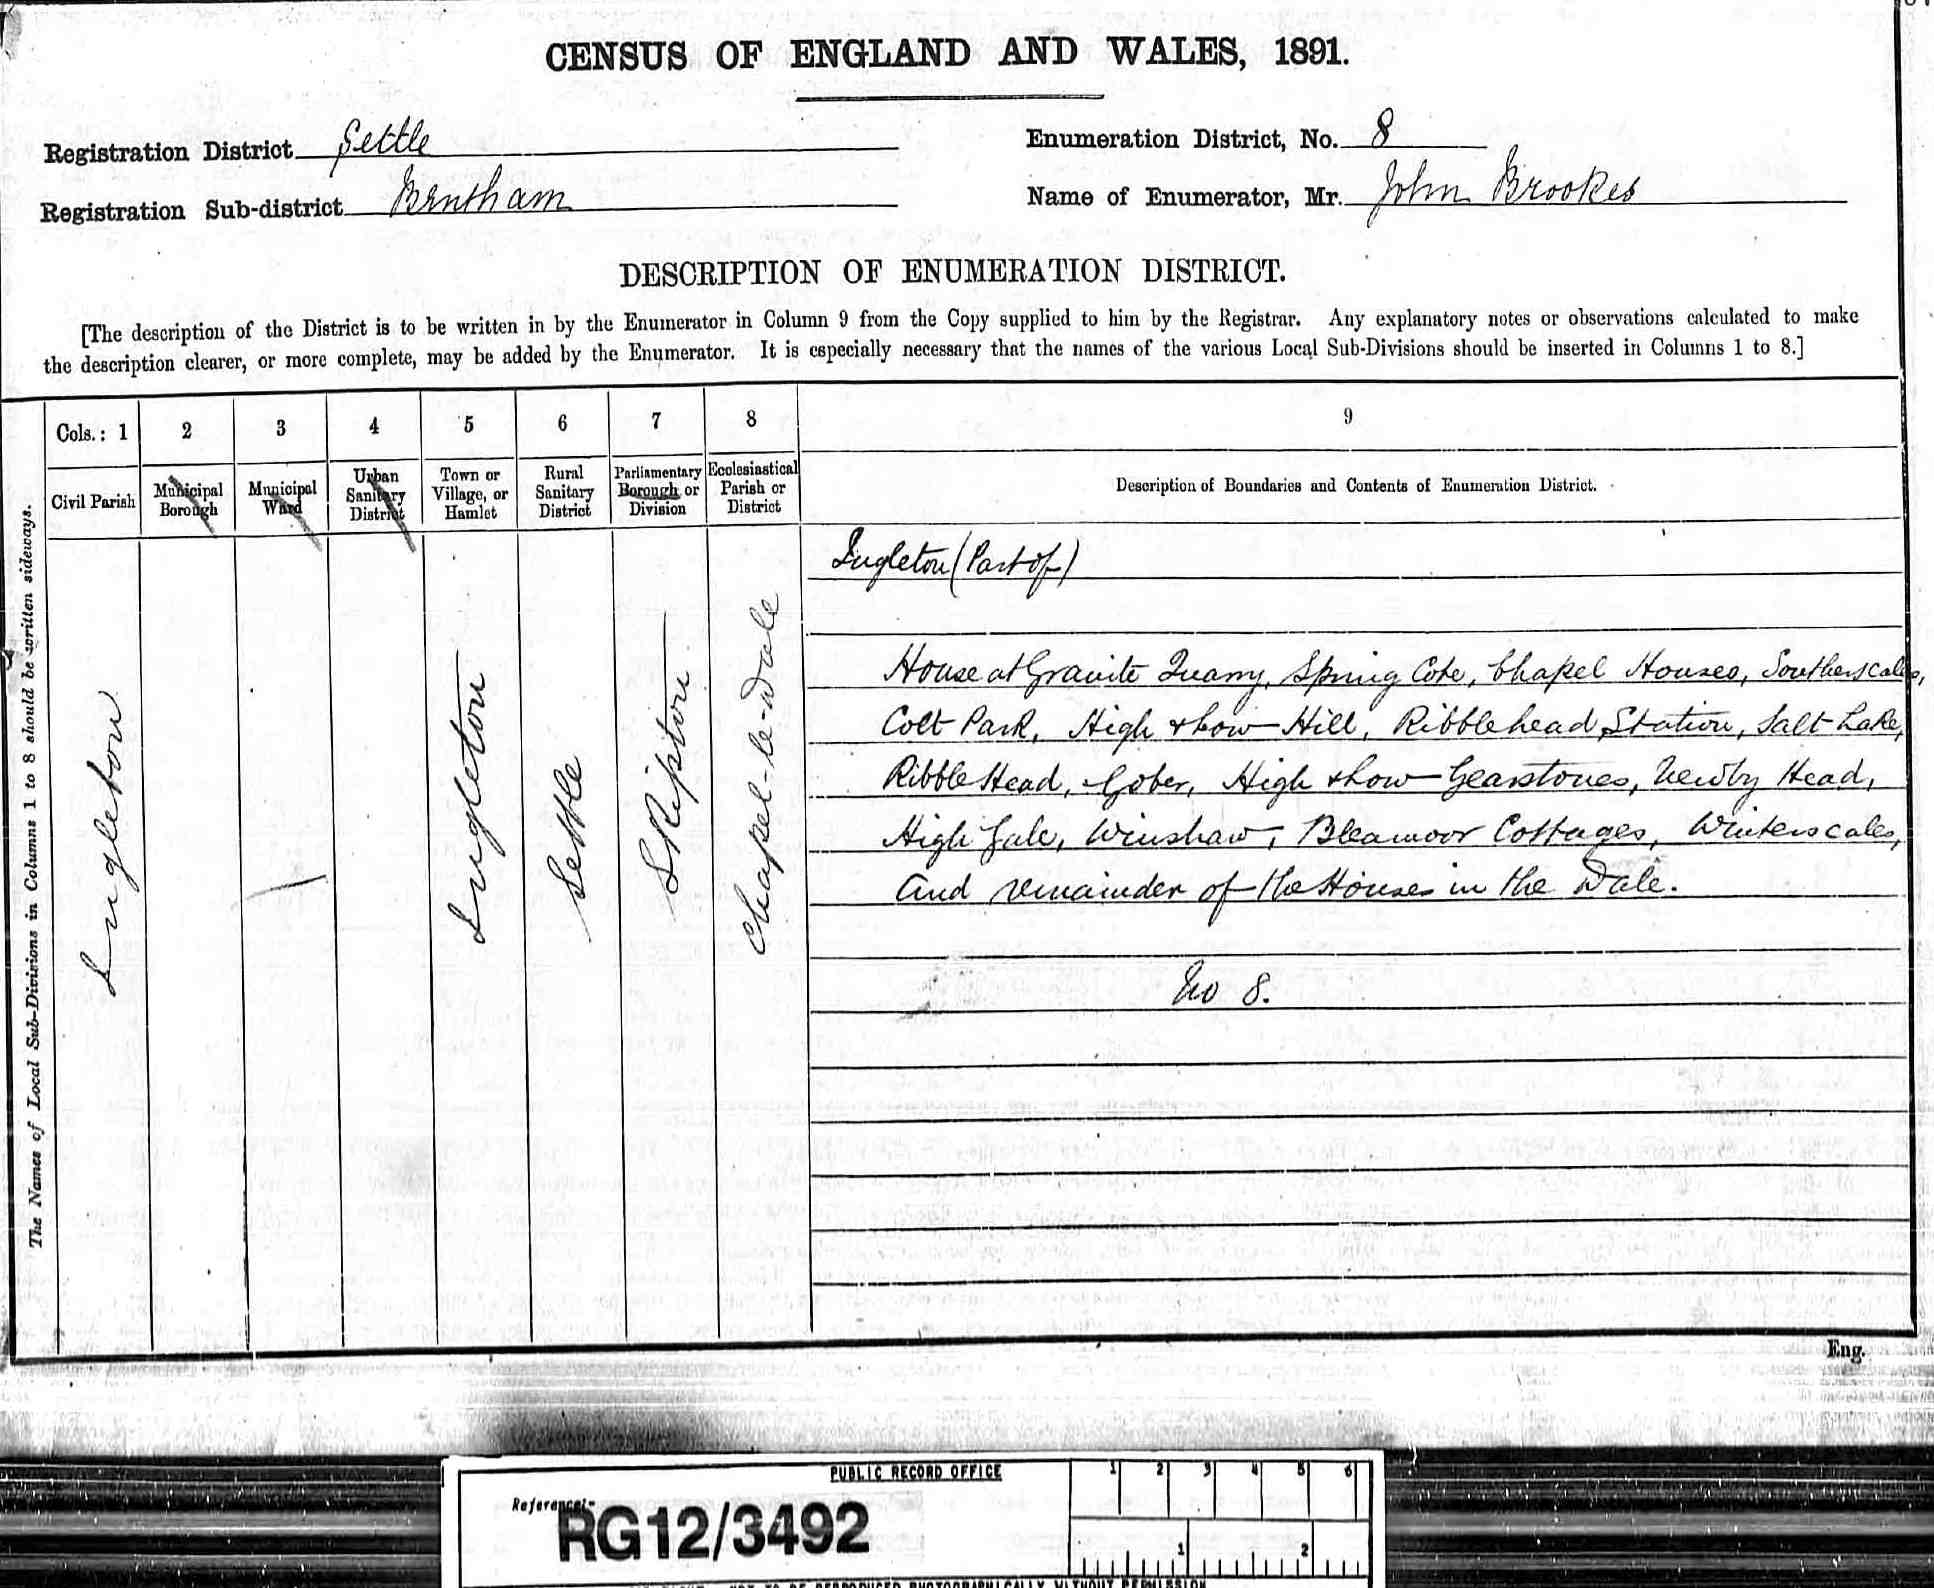 CENSUS OF ENGLAND AND WALES, 1891.
Registration District Settle
Enumeration District, No. 8
Registration Sub-district Bentham
Name of Enumerator, Mr. John Brookes
DESCRIPTION OF ENUMERATION DISTRICT.
[The description of the District is to be written in by the Enumerator in Column 9 from the Copy supplied to him by the Registrar. Any explanatory notes or observations calculated to make
the description clearer, or more complete, may be added by the Enumerator. It is especially necessary that the names of the various Local Sub-Divisions should be inserted in Columns 1 to 8.]
The Names of Local Sub-Divisions in Columns 1 to 8 should be written sideways.
Cols.: 1 2 3 4 5 6 7 8 9
Civil Parish
Municipal
Borough
Municipal
Ward
Urban
Sanitary
District
Town or
Village, or
Hamlet
Rural
Sanitary
District
Parliamentary
Borough or
Division
Ecclesiastical
Parish or
District
Description of Boundaries and Contents of Enumeration District.
Ingleton
Ingleton
Settle
Skipton
Chapel-le-Dale
Ingleton (Part of)
House at Granite Quarry, Spring Cote, Chapel Houses, Southerscales,
Colt Park, High & Low Hill, Ribblehead Station, Salt Lake,
Ribble Head, Gober, High & Low Gearstones, Newby Head,
High Gale, Winshaw, Bleamoor Cottages, Winterscales,
and remainder of the Houses in the Dale.
No 8.
Eng.
PUBLIC RECORD OFFICE
1 2 3 4 5 6
Reference:-
RG12/3492
1 2